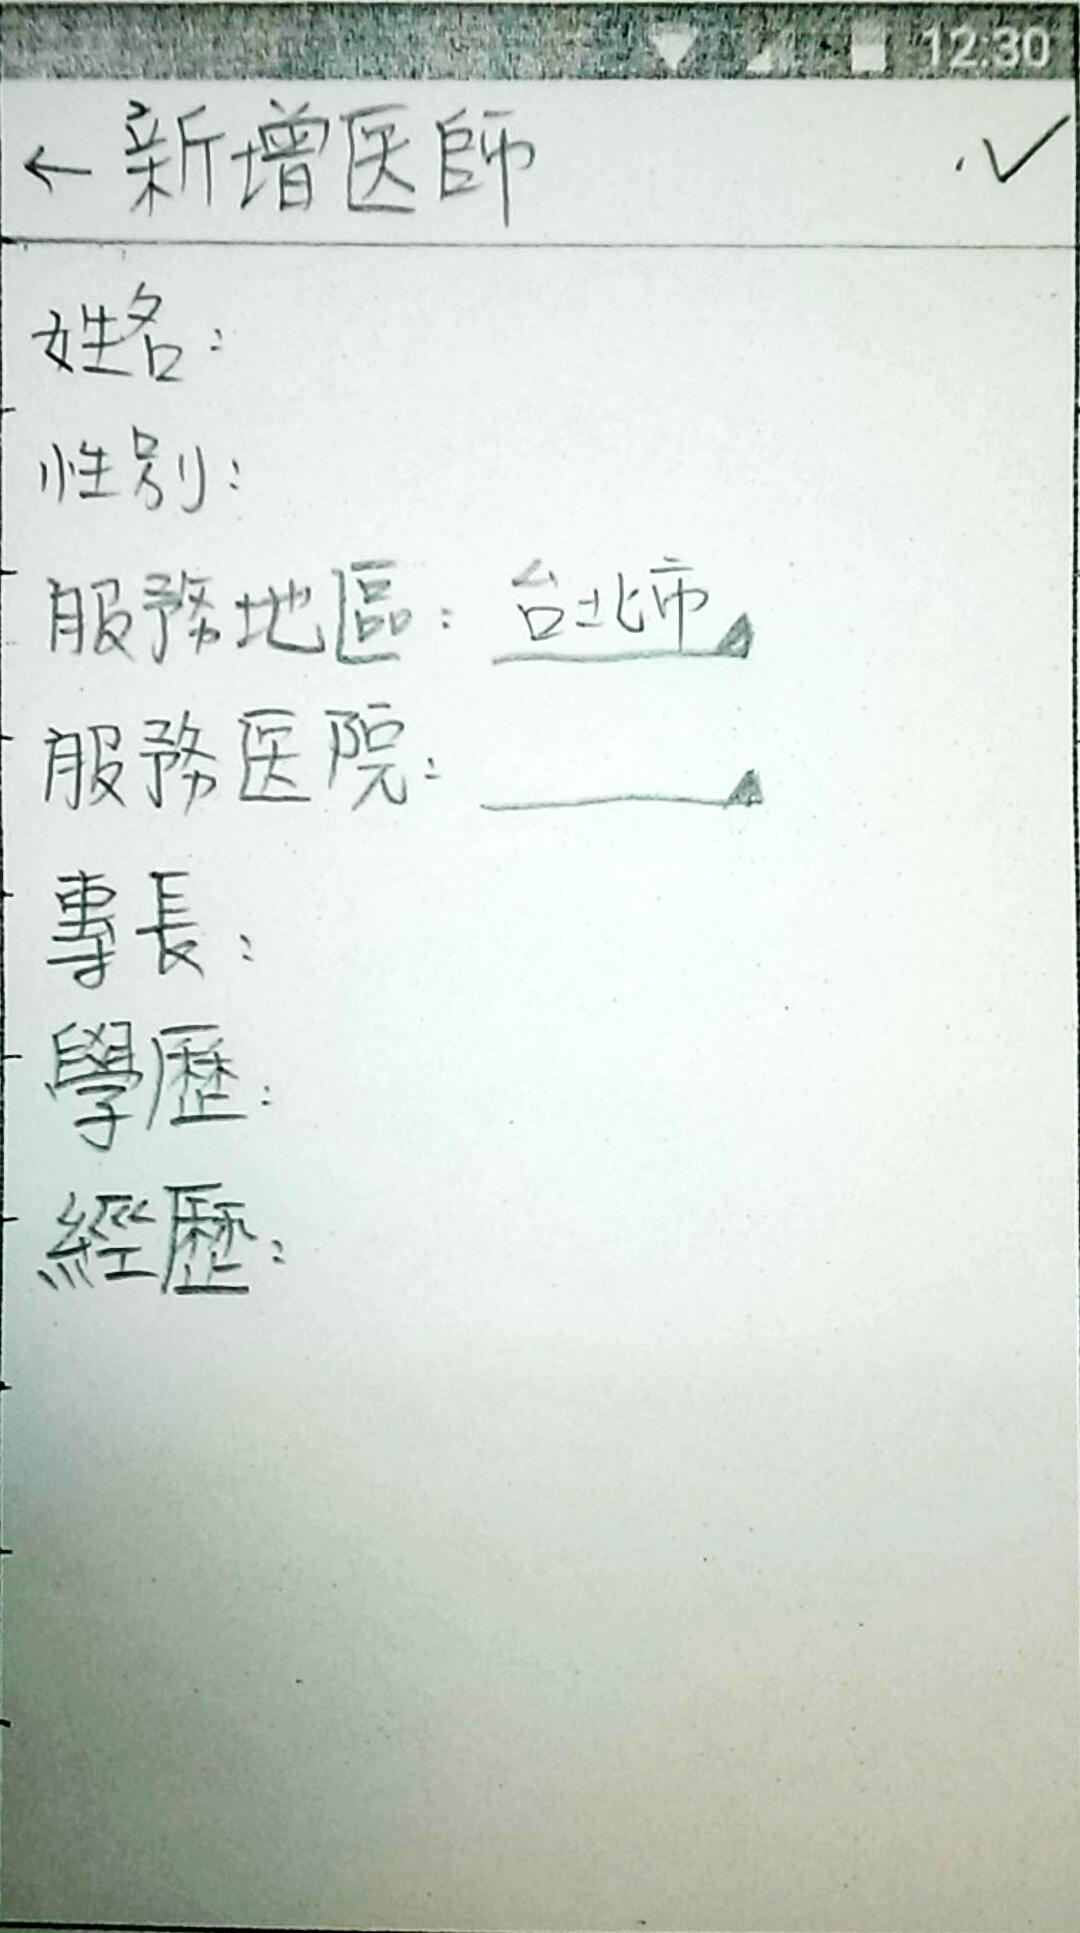 12:30
←新增医師 ✓
姓名:
性別:
服務地區: 台北市
服務医院:
專長:
學歷:
經歷: